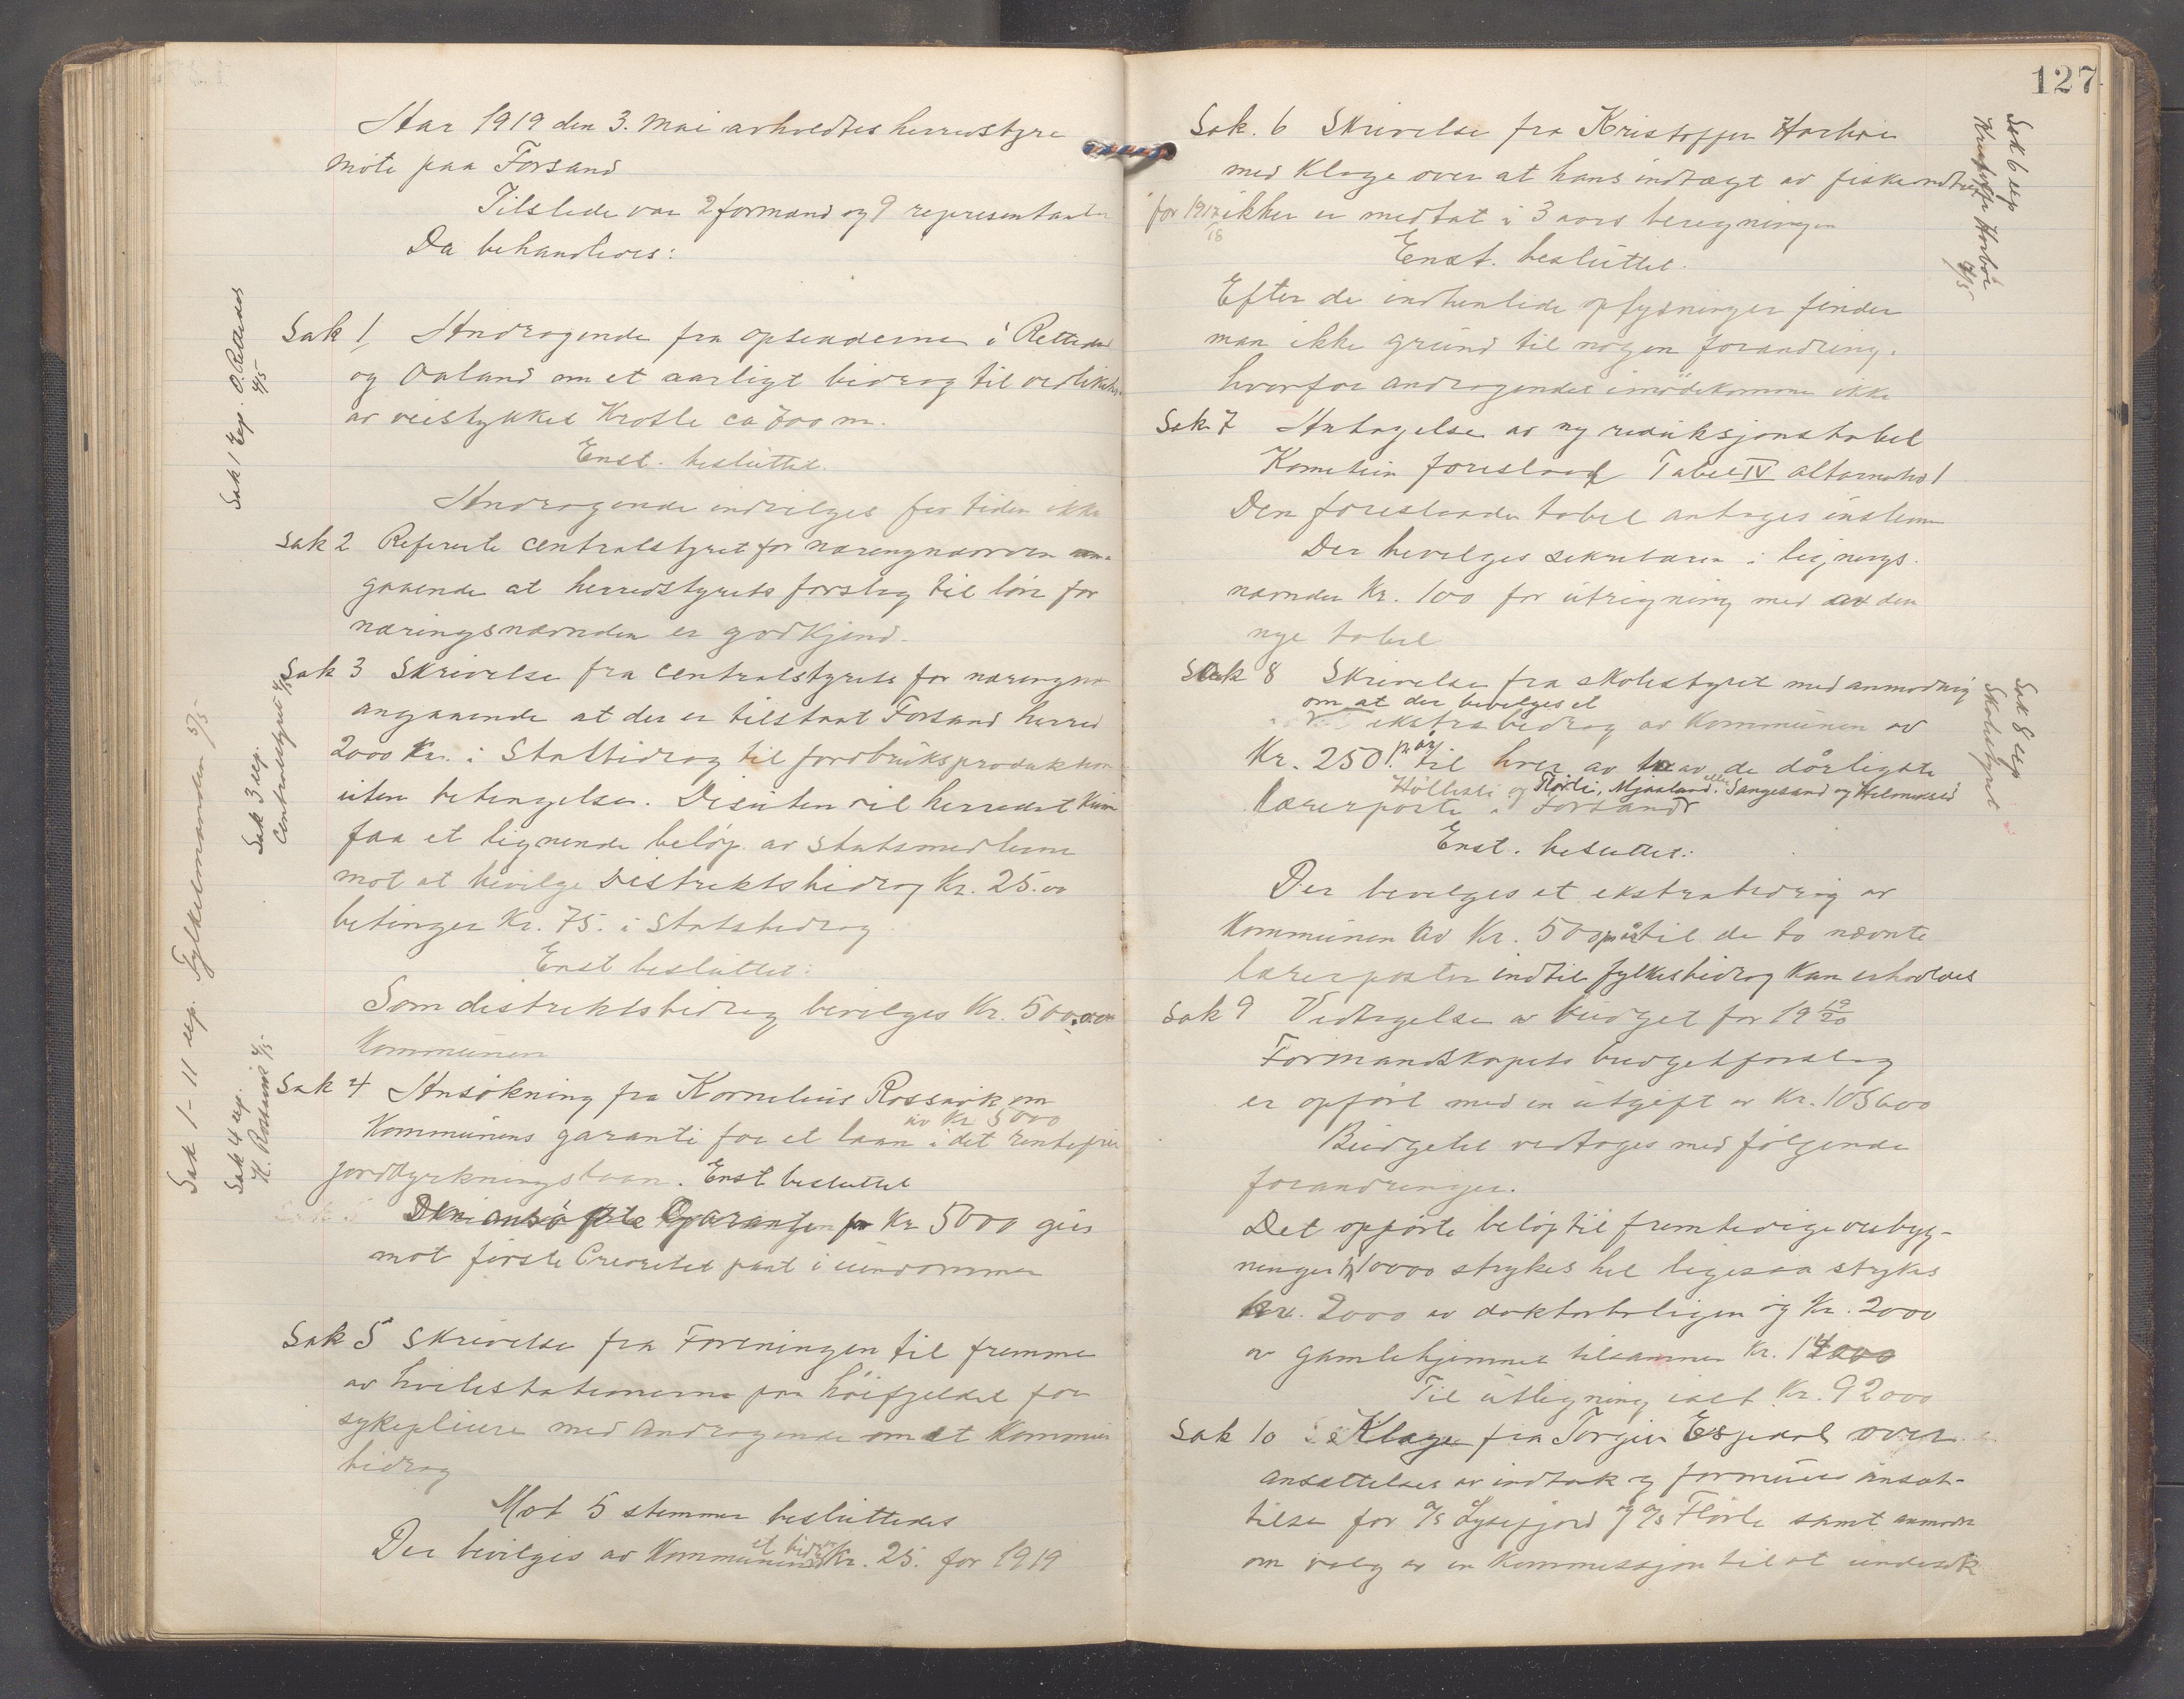 Aar 1919 den 3. Mai avholdtes herredstyre
möte paa Forsand
Tilstede var 2 formænd og 9 representanter
Da behandledes:
Sak 1 Andragende fra opsitterne i Rettedal
og Oaland om et aarligt bidrag til vedlikehold
av veistykket Krossle ca 700 m.
Enst. besluttet.
Andragende indvilges for tiden ikke
Sak 2 Refererte centralstyret for næringsnævnden an-
gaaende at herredstyrets forslag til lön for
næringsnævnden er godkjend.
Sak 3 Skrivelse fra centralstyret for næringsn
angaaende at der er tilstaat Forsand herred
2000 Kr. i Statbidrag til jordbruksproduktion
uten betingelse. Desuten vil herredet kun
faa et lignende belöp av statsmedlerne
mot at bevilge Distriktsbidrag Kr. 25.00
betinger Kr. 75. i Statsbidrag
Enst besluttet:
Som distriktsbidrag bevilges Kr. 500 av
Kommunen
Sak 4 Ansökning fra Kornelius Rossavik om
av Kr 5000
Kommunens garanti for et laan i det rentefrie
jorddyrkningslaan. Enst besluttet
Den ansökte Garantien for Kr 5000 gies
mot förste Prioritet pant i eiendommen
Sak 5 Skrivelse fra Foreningen til fremme
av hvilestationerne paa höifjeldet for
sykepleiere med andragende om et Kommune
bidrag
Mot 5 stemmer besluttedes
et bidrag
Der bevilges av Kommunen Kr. 25. for 1919
Sak 1 Exp. O. Rettedal 4/5
Sak 3 exp. Centralstyret 4/5
Sak 1-11 exp. Fylkesmanden 5/5
Sak 4 exp. K. Rossavik 4/5
127
Sak. 6 Skrivelse fra Kristoffer
med Klage over at hans indtægt av fiske
for 1917/18 ikke er medtat i 3 aars beregningen
Enst. besluttet.
Efter de indhentede oplysninger finder
man ikke grund til nogen forandring.
hvorfor andragendet imödekommes ikke
Sak 7 Antagelse av ny reduksjonstabel
Komiteen foreslaar Tabel IV alternativ 1
Den foreslaade tabel antages enstem
Der bevilges sekretæren i lignings-
nævnden Kr. 100 for utregning med av den
nye tabel
Sak 8 Skrivelse fra skolestyret med anmodning
om at der bevilges et
ekstrabidrag av Kommunen av
Kr. 250. pr. år til hver av to av de dårligste
Höllesli og Flörli, Mjaaland eller Sangesand og Helmikstöl
lærerposter i Forsand
Enst. besluttet:
Der bevilges et ekstrabidrag av
Kommunen av Kr. 50 pr år til de to nævnte
lærerposter indtil fylkesbidrag kan erholdes
Sak 9 Vedtagelse av budget for 19 19/20
Formandskapets budgetforslag
er opfört med en utgift av Kr. 105600
Budgettet vedtages med fölgende
forandringer.
Det opförte belöp til fremtidige veibyg-
ninger 10000 strykes hel ligesaa strykes
kr. 2000 av doktorboligen og Kr. 2000
av gamlehjemmet tilsammen Kr. 14000
Til utligning ialt Kr. 92000
Sak 10 Klage fra Torger Espedal over
ansættelse av indtæk og formues ansæt-
telse for A/s Lysefjord og A/s Flörli samt anmoder
om valg av en Kommission til at undersök
Sak 6 exp Kristoffer 4/5
Sak 8 exp Skolestyret